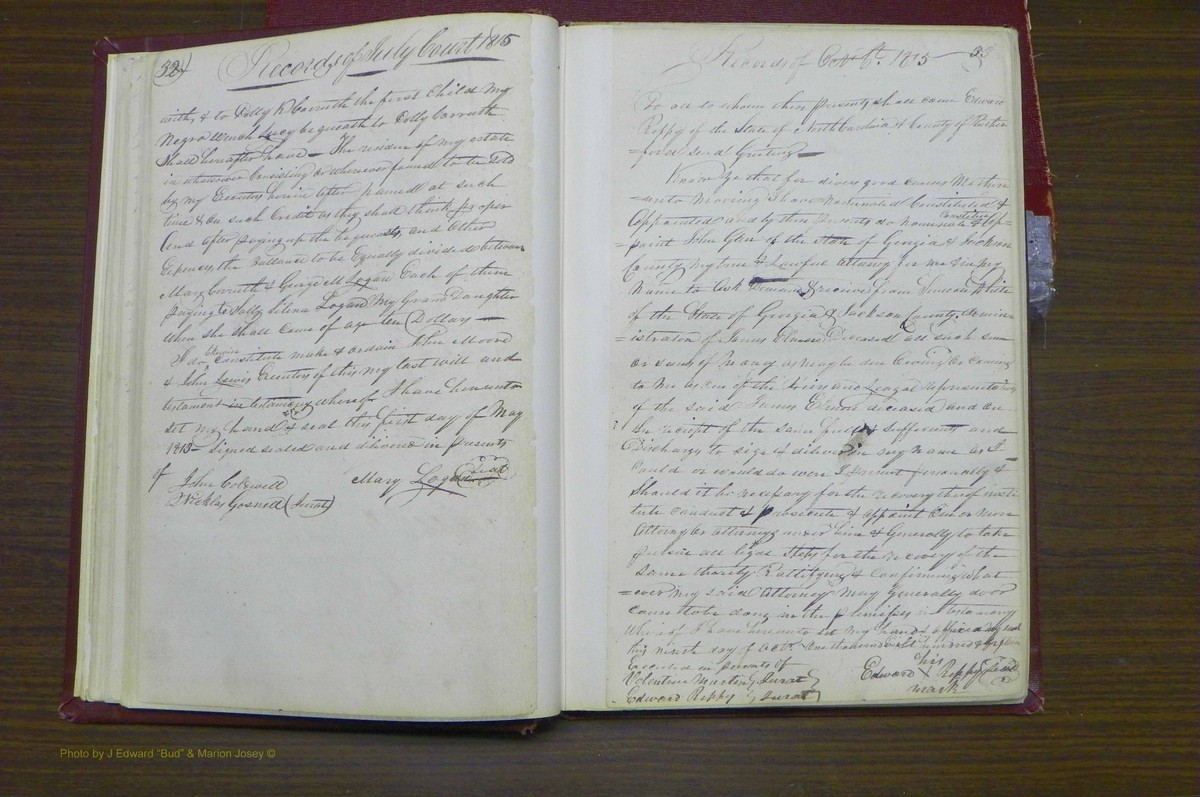 32
Records of July Court 1815
with, & to Dolly K Carruth the first Child My
Negro Wench Lucy bequeath to Dolly Carruth
Shall hereafter have — The residue of my estate
in whatsoever Consisting or wherever found to be Sold
by my Executors herein after named at such
time & on such Credit as they shall think proper
And after paying up the bequeasts, and Other
Expences, the ballance to be Equally divided between
Mary Carruth & George M Logan Each of them
paying to Sally Selina Logan My Grand Daughter
When she shall come of age ten Dollars —
I do constitute make & ordain John Moore
& John Lewis Executors of this my last will and
testament in testamony whereof I have hereunto
set my hand & seal this first day of May
1815 — Signed sealed and delivered in presents
of John Colewell
Nicklas Gosnell (Jurat)
Mary Logan Seal
Records of Oct Ct. 1815
33
To all to whom these presents shall come Edward
Reppy of the State of North Carolina & County of Ruther
=ford send Greeting —
Know Ye that for divers good Causes Me there
=unto Moving I have Nominated Constituted &
Appointed and by these presents do nominate Constitute & Ap=
=point John Glen of the State of Georgia & Jackson
County my true & Lawful Attorney for me & in my
Name to Ask Demand & receive from Simeon White
of the State of Georgia & Jackson County Admin
=istrator of James Deceased all such sum
or sums of Money as may be due Owing or coming
to Me as one of the Heirs and Leagal representatives
of the said James deceased and on
the receipt of the same good & sufficient and
Discharge to sign & deliver in my name as I
Could or would do were I present personally &
Should it be necessary for the recovery thereof insti
tute conduct & prosecute & appoint One or more
Attorney or attorneys under him & Generally to take
pursue all legal Steps for the recovery of the
same thereby Rattifying & Confirming what
=ever my said Attorney may Generally do or
cause to be done in the premises in testamony
Whereof I have hereunto set my hand & affixed my seal
this ninth day of Octr. One thousand Eight hundred & fifteen
Executed in presents of
Volentine Martin Jurat
Edward Reppy Jurat
Edward his X mark Reppy Seal
Photo by J Edward "Bud" & Marion Josey ©